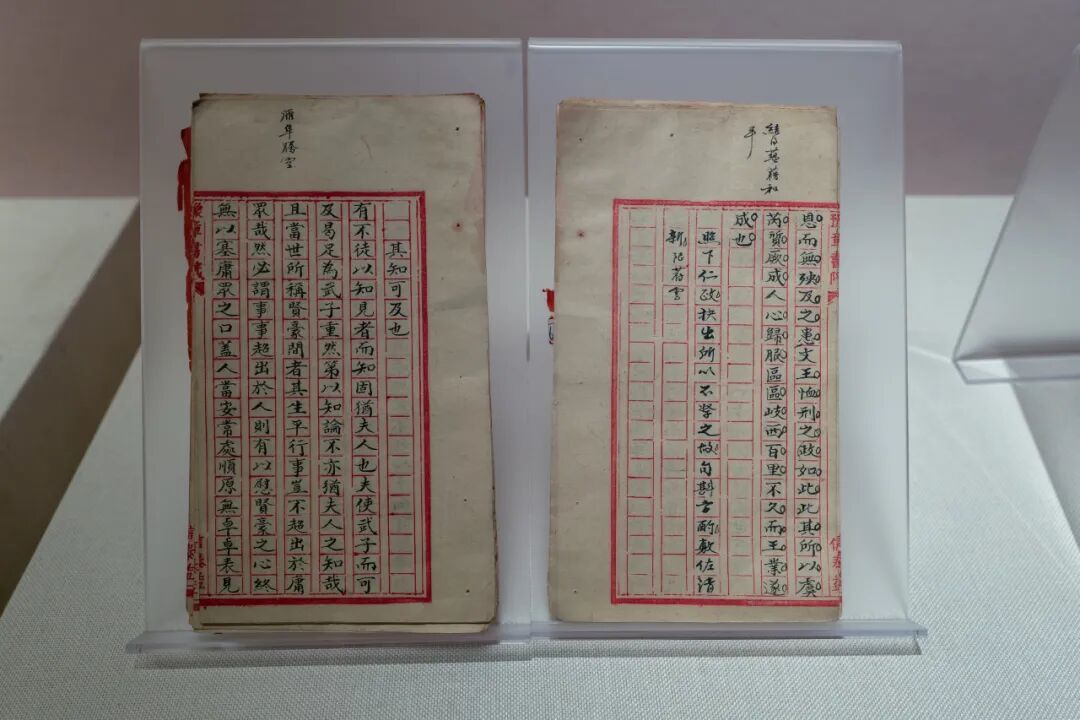 其知可及也
有不徒以知見者而知固猶夫人也夫使武子而可
及曷足為武子重然第以知論不亦猶夫人之知哉
且當世所稱賢豪間者其生平行事豈不超出於庸
眾哉然必謂事事超出於人則有以慰賢豪之心終
無以塞庸眾之口蓋人當安常處順原無卓卓表見
結句蘊藉和
平
恩而無殃及之患文王恤刑之政如此此其所以虞
芮質厥成人心歸服區區岐西百里不久而王業遂
成也
照下仁政抉出所以不孥之故句斟字酌敷佐清
新